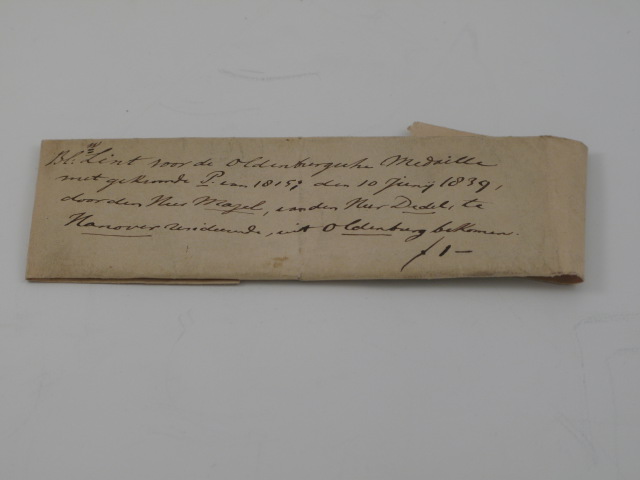 Bl: Lint voor de Oldenburgsche Medaille
met gekroonde P. van 1815; den 10 Junij 1839,
door den Heer van den Heer Dedel, te
Hanover resideerende, uit Oldenburg bekomen.
f 1 —